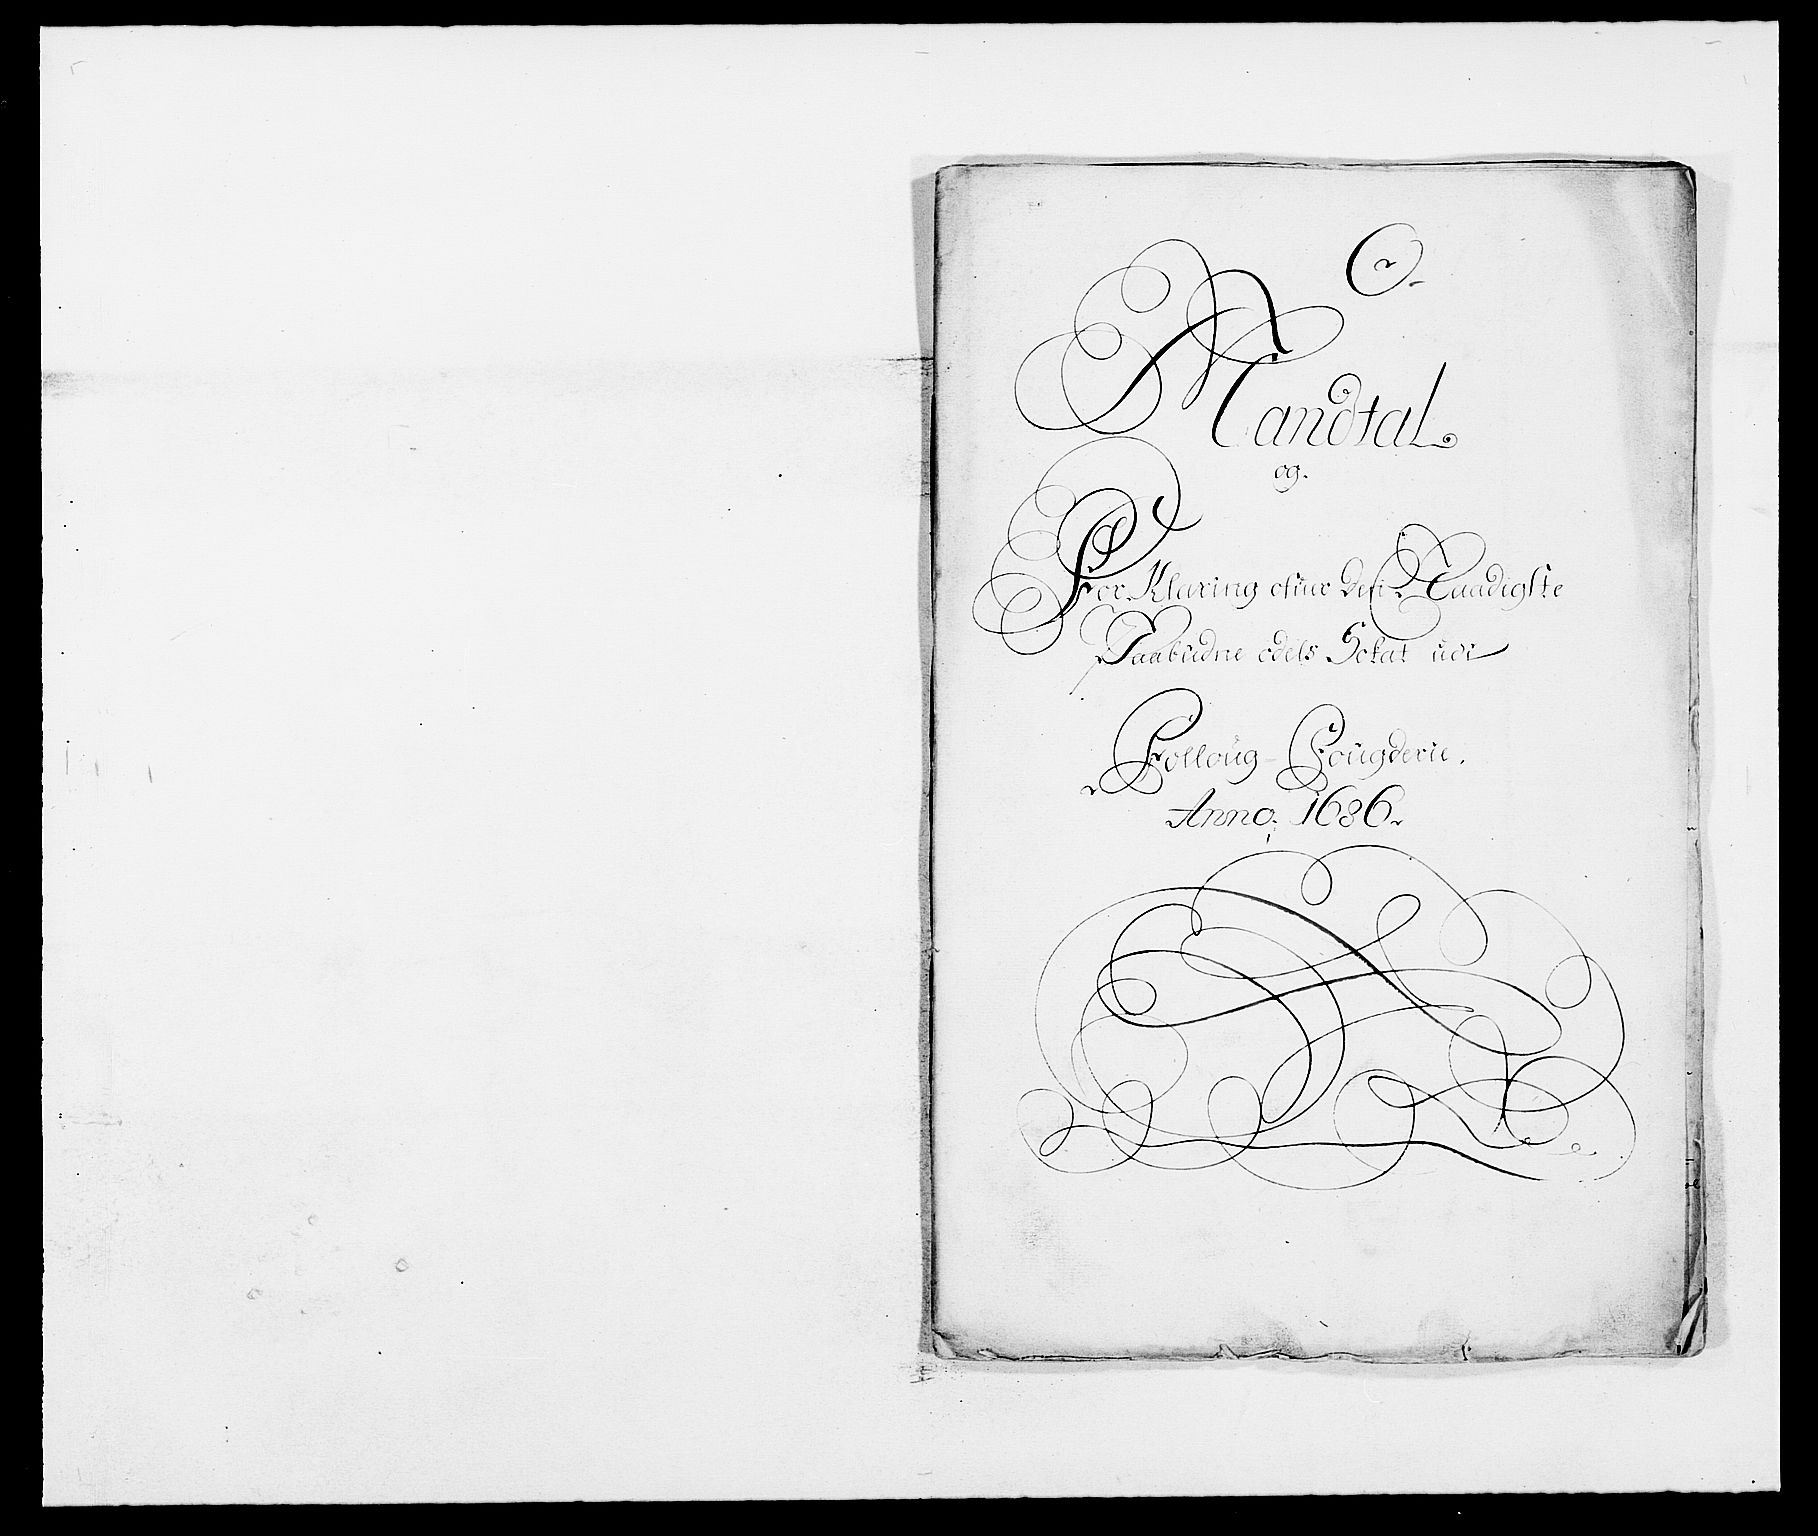 O.
Mandtal
og.
For Klaring ofuer den Naadigste
Paabudne odels Schat udi
Folloug- Fougderie.
Anno. 1686.